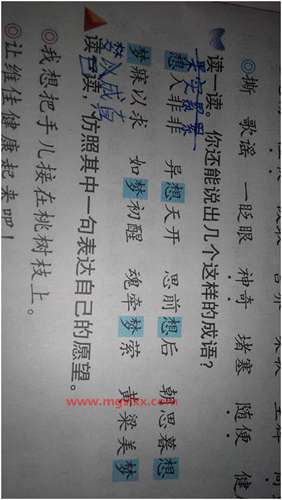 撕 歌谣 一眨眼 神奇 堵塞 随便 健
读一读。你还能说出几个这样的成语?
想入非非 异想天开 思前想后 朝思暮想
梦寐以求 如梦初醒 魂牵梦萦 黄粱美梦
梦以成真
读一读,仿照其中一句表达自己的愿望。
◎我想把手儿接在桃树枝上。
◎让维佳健康起来吧!